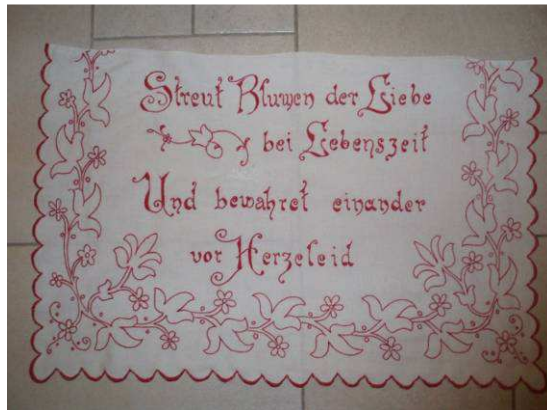 Streut Blumen der Liebe
bei Lebenszeit
Und bewahret einander
vor Herzeleid